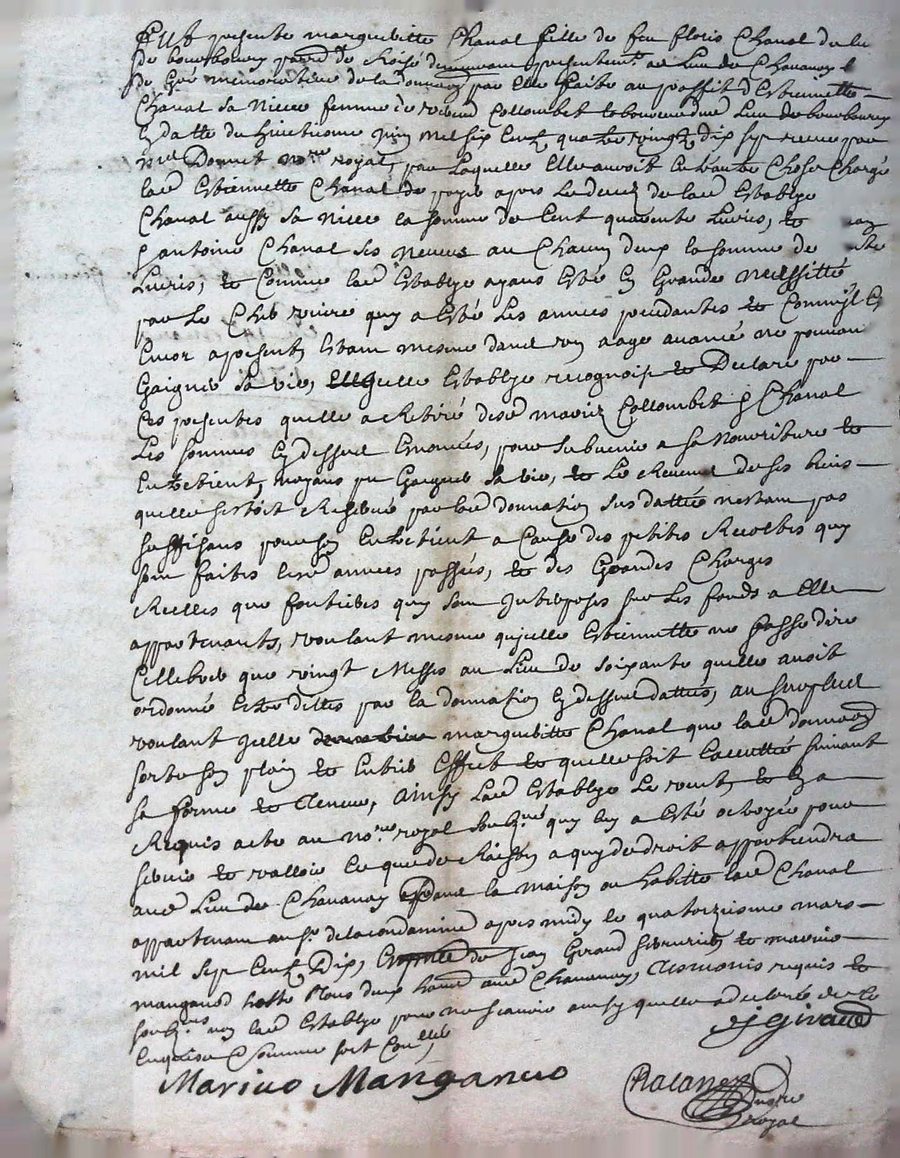 Fust presente margueritte Chanal fille de feu floris Chanal du lieu
de bourbourey parr[e] de Roisé demeurant presentemt au Lieu de Chavanay
de Gré memorative de la donnaon par elle faitte au proffit d'Estiennette
Chanal sa Niece femme de Collombet laboureur du Lieu de bourbourey
En datte du huictiesme juin mil six cent quatre vingt dix sept receue par
me Donnet nore royal, par laquelle Elle auroit entre autre Chose Chargé
lade Estiennette Chanal de payer apres le decez de lade Establye
Chanal aussy sa Niece la somme de Cent quarente Livres, et
antoine Chanal ses neveux au Chacun deux la somme de
Livres, et Comme lade Establye ayant Esté En Grande necessitté
par le Cher vivre quy a Esté Les années precedantes et Comm'il Est
Encor a present, Estant mesme dans son aage avancé ne pouvant
Gaigner sa vie, Elle Establye recognoist et Declare par
Ces presentes quelle a Retiré desd mariez Collombet et Chanal
Les sommes Cy dessus Enoncées, pour Subvenir a sa Nourriture et
Entretient, n'ayant pu Gaigner sa vie, et Le Revenu de ses biens
quelle s'estoit Reservé par lade donnation susdattée n'estant pas
suffisant pour son Entretient a Cause des petites Recoltes quy
sont faites lesd années passées, et des Grandes Charges
Reelles que fontieres quy sont Imposées sur Les fonds a Elle
appartenants, voulant mesme qu'jcelle Estiennette ne fasse dire
Cellebrer que vingt Messes au Lieu de soixante quelle avoit
ordonné Estre dittes par la donnation Cy dessus dattée, au surplus
voulant jcelle margueritte Chanal que lade donnaon
sorte son plain et Entier Effect et quelle soit Executtée suivant
sa forme et teneur, Ainsy lade Establye Le veut et En a
Requis acte au nore royal soubzné quy luy a Esté octroyée pour
servir et valloir Ce que de Raison a quy de droit appartiendra
aud Lieu de Chavanay dans la maison ou habitte lade Chanal
appartenant au sr delacondamine apres midy le quatorziesme mars
mil sept Cent Dix, En pnce de jean Giraud serrurier, et marie
manganod hoste tous deux habits aud Chavanay, tesmoins requis et
soubznés non lade Establye pour ne scavoir ainsy quelle a declaré de ce
Enquise Comme soit Conllé
J Giraud
Mariuo Manganuo
Racanet
nore
royal